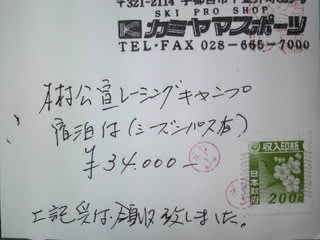 〒321-2114 宇都宮市
SKI PRO SHOP
カミヤマスポーツ
TEL・FAX 028-665-7000
木村公宣レーシングキャンプ
宿泊 (シーズンパス有)
¥34,000-
収入印紙
日本政府
200
上記 領収致しました。